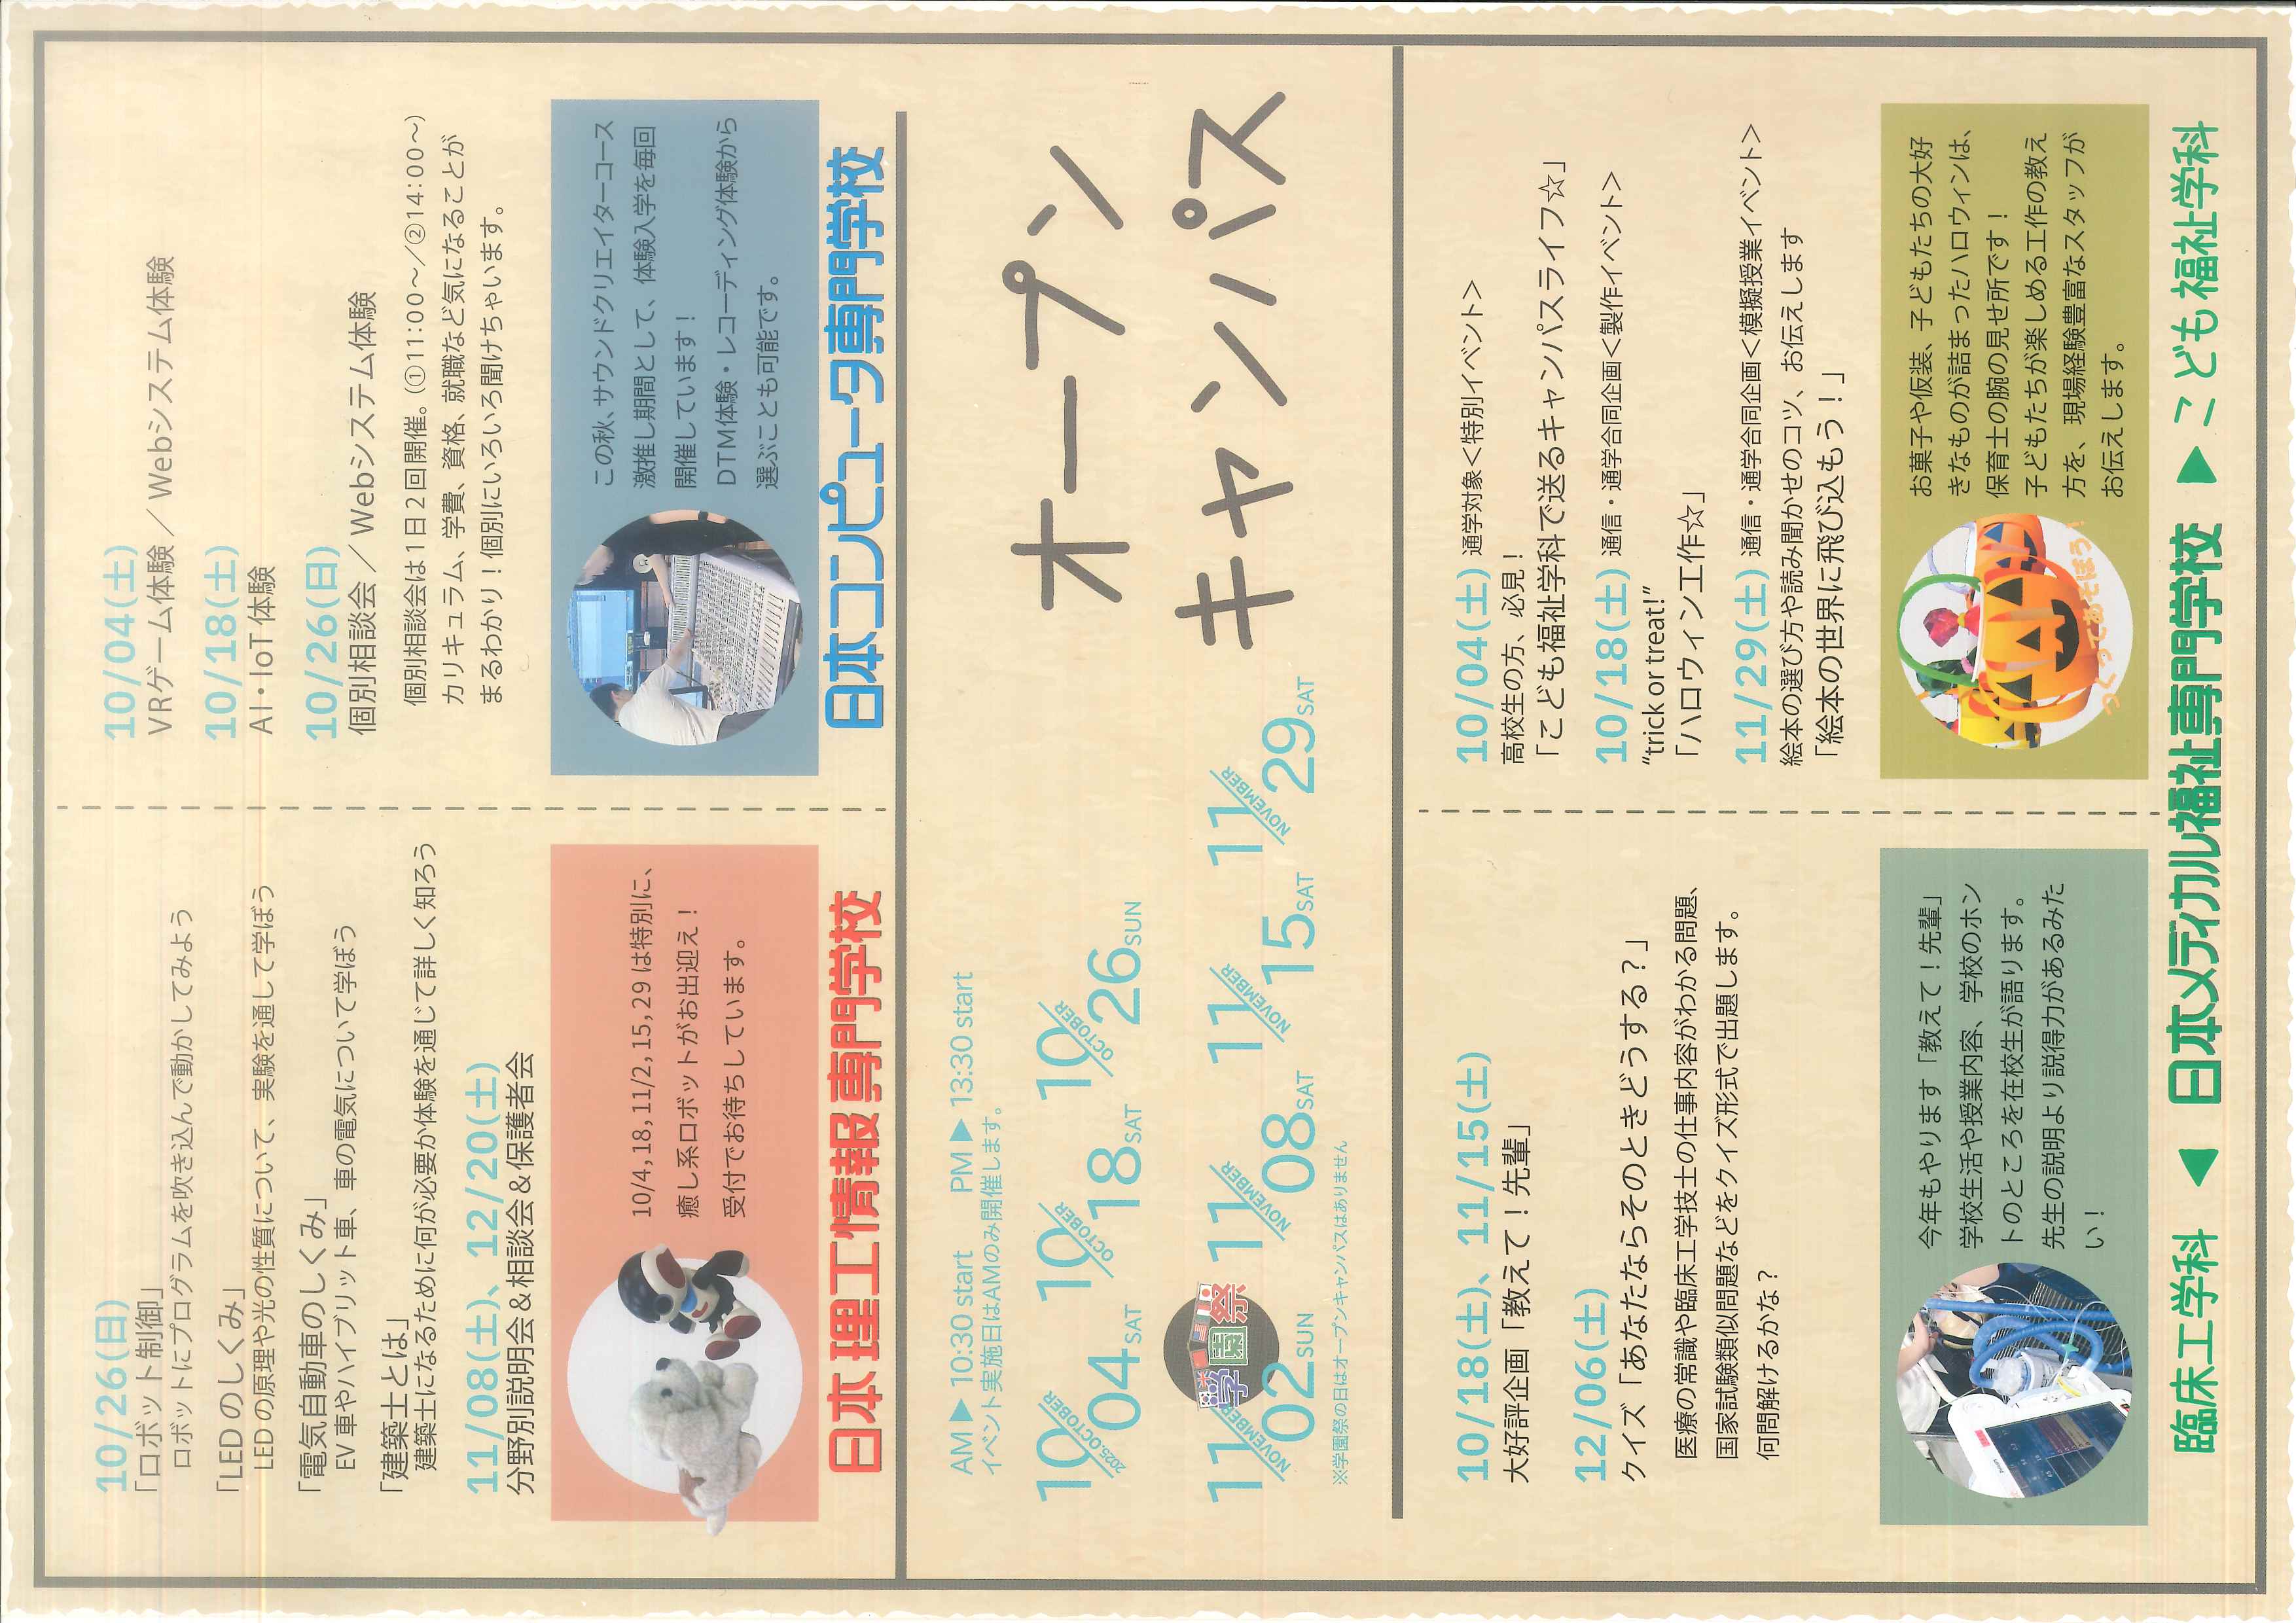 10/26(日)
「ロボット制御」
ロボットにプログラムを吹き込んで動かしてみよう
「LEDのしくみ」
LEDの原理や光の性質について、実験を通して学ぼう
「電気自動車のしくみ」
EV車やハイブリット車、車の電気について学ぼう
「建築士とは」
建築士になるために何が必要か体験を通じて詳しく知ろう
11/08(土)、12/20(土)
分野別説明会＆相談会＆保護者会
10/4,18,11/2,15,29は特別に、
癒し系ロボットがお出迎え！
受付でお待ちしています。
日本理工情報専門学校
10/04(土)
VRゲーム体験／Webシステム体験
10/18(土)
AI・IoT体験
10/26(日)
個別相談会／Webシステム体験
個別相談会は1日2回開催。(①11:00～/②14:00～)
カリキュラム、学費、資格、就職など気になることが
まるわかり！個別にいろいろ聞けちゃいます。
この秋、サウンドクリエイターコース
激推し期間として、体験入学を毎回
開催しています！
DTM体験・レコーディング体験から
選ぶことも可能です。
日本コンピュータ専門学校
AM▶10:30 start PM▶13:30 start
イベント実施日はAMのみ開催します。
10/04 SAT 2025.OCTOBER
10/18 SAT OCTOBER
10/26 SUN OCTOBER
11/02 SUN NOVEMBER
学園祭
11/08 SAT NOVEMBER
11/15 SAT NOVEMBER
11/29 SAT NOVEMBER
※学園祭の日はオープンキャンパスはありません
オープン
キャンパス
10/18(土)、11/15(土)
大好評企画「教えて！先輩」
12/06(土)
クイズ「あなたならそのときどうする？」
医療の常識や臨床工学技士の仕事内容がわかる問題、
国家試験類似問題などをクイズ形式で出題します。
何問解けるかな？
今年もやります「教えて！先輩」
学校生活や授業内容、学校のホン
トのところを在校生が語ります。
先生の説明より説得力があるみた
い！
10/04(土) 通学対象＜特別イベント＞
高校生の方、必見！
「こども福祉学科で送るキャンパスライフ☆」
10/18(土) 通信・通学合同企画＜製作イベント＞
“trick or treat!”
「ハロウィン工作☆」
11/29(土) 通信・通学合同企画＜模擬授業イベント＞
絵本の選び方や読み聞かせのコツ、お伝えします
「絵本の世界に飛び込もう！」
つくってあそぼう！
お菓子や仮装、子どもたちの大好
きなものが詰まったハロウィンは、
保育士の腕の見せ所です！
子どもたちが楽しめる工作の教え
方を、現場経験豊富なスタッフが
お伝えします。
臨床工学科 ◀ 日本メディカル福祉専門学校 ▶ こども福祉学科